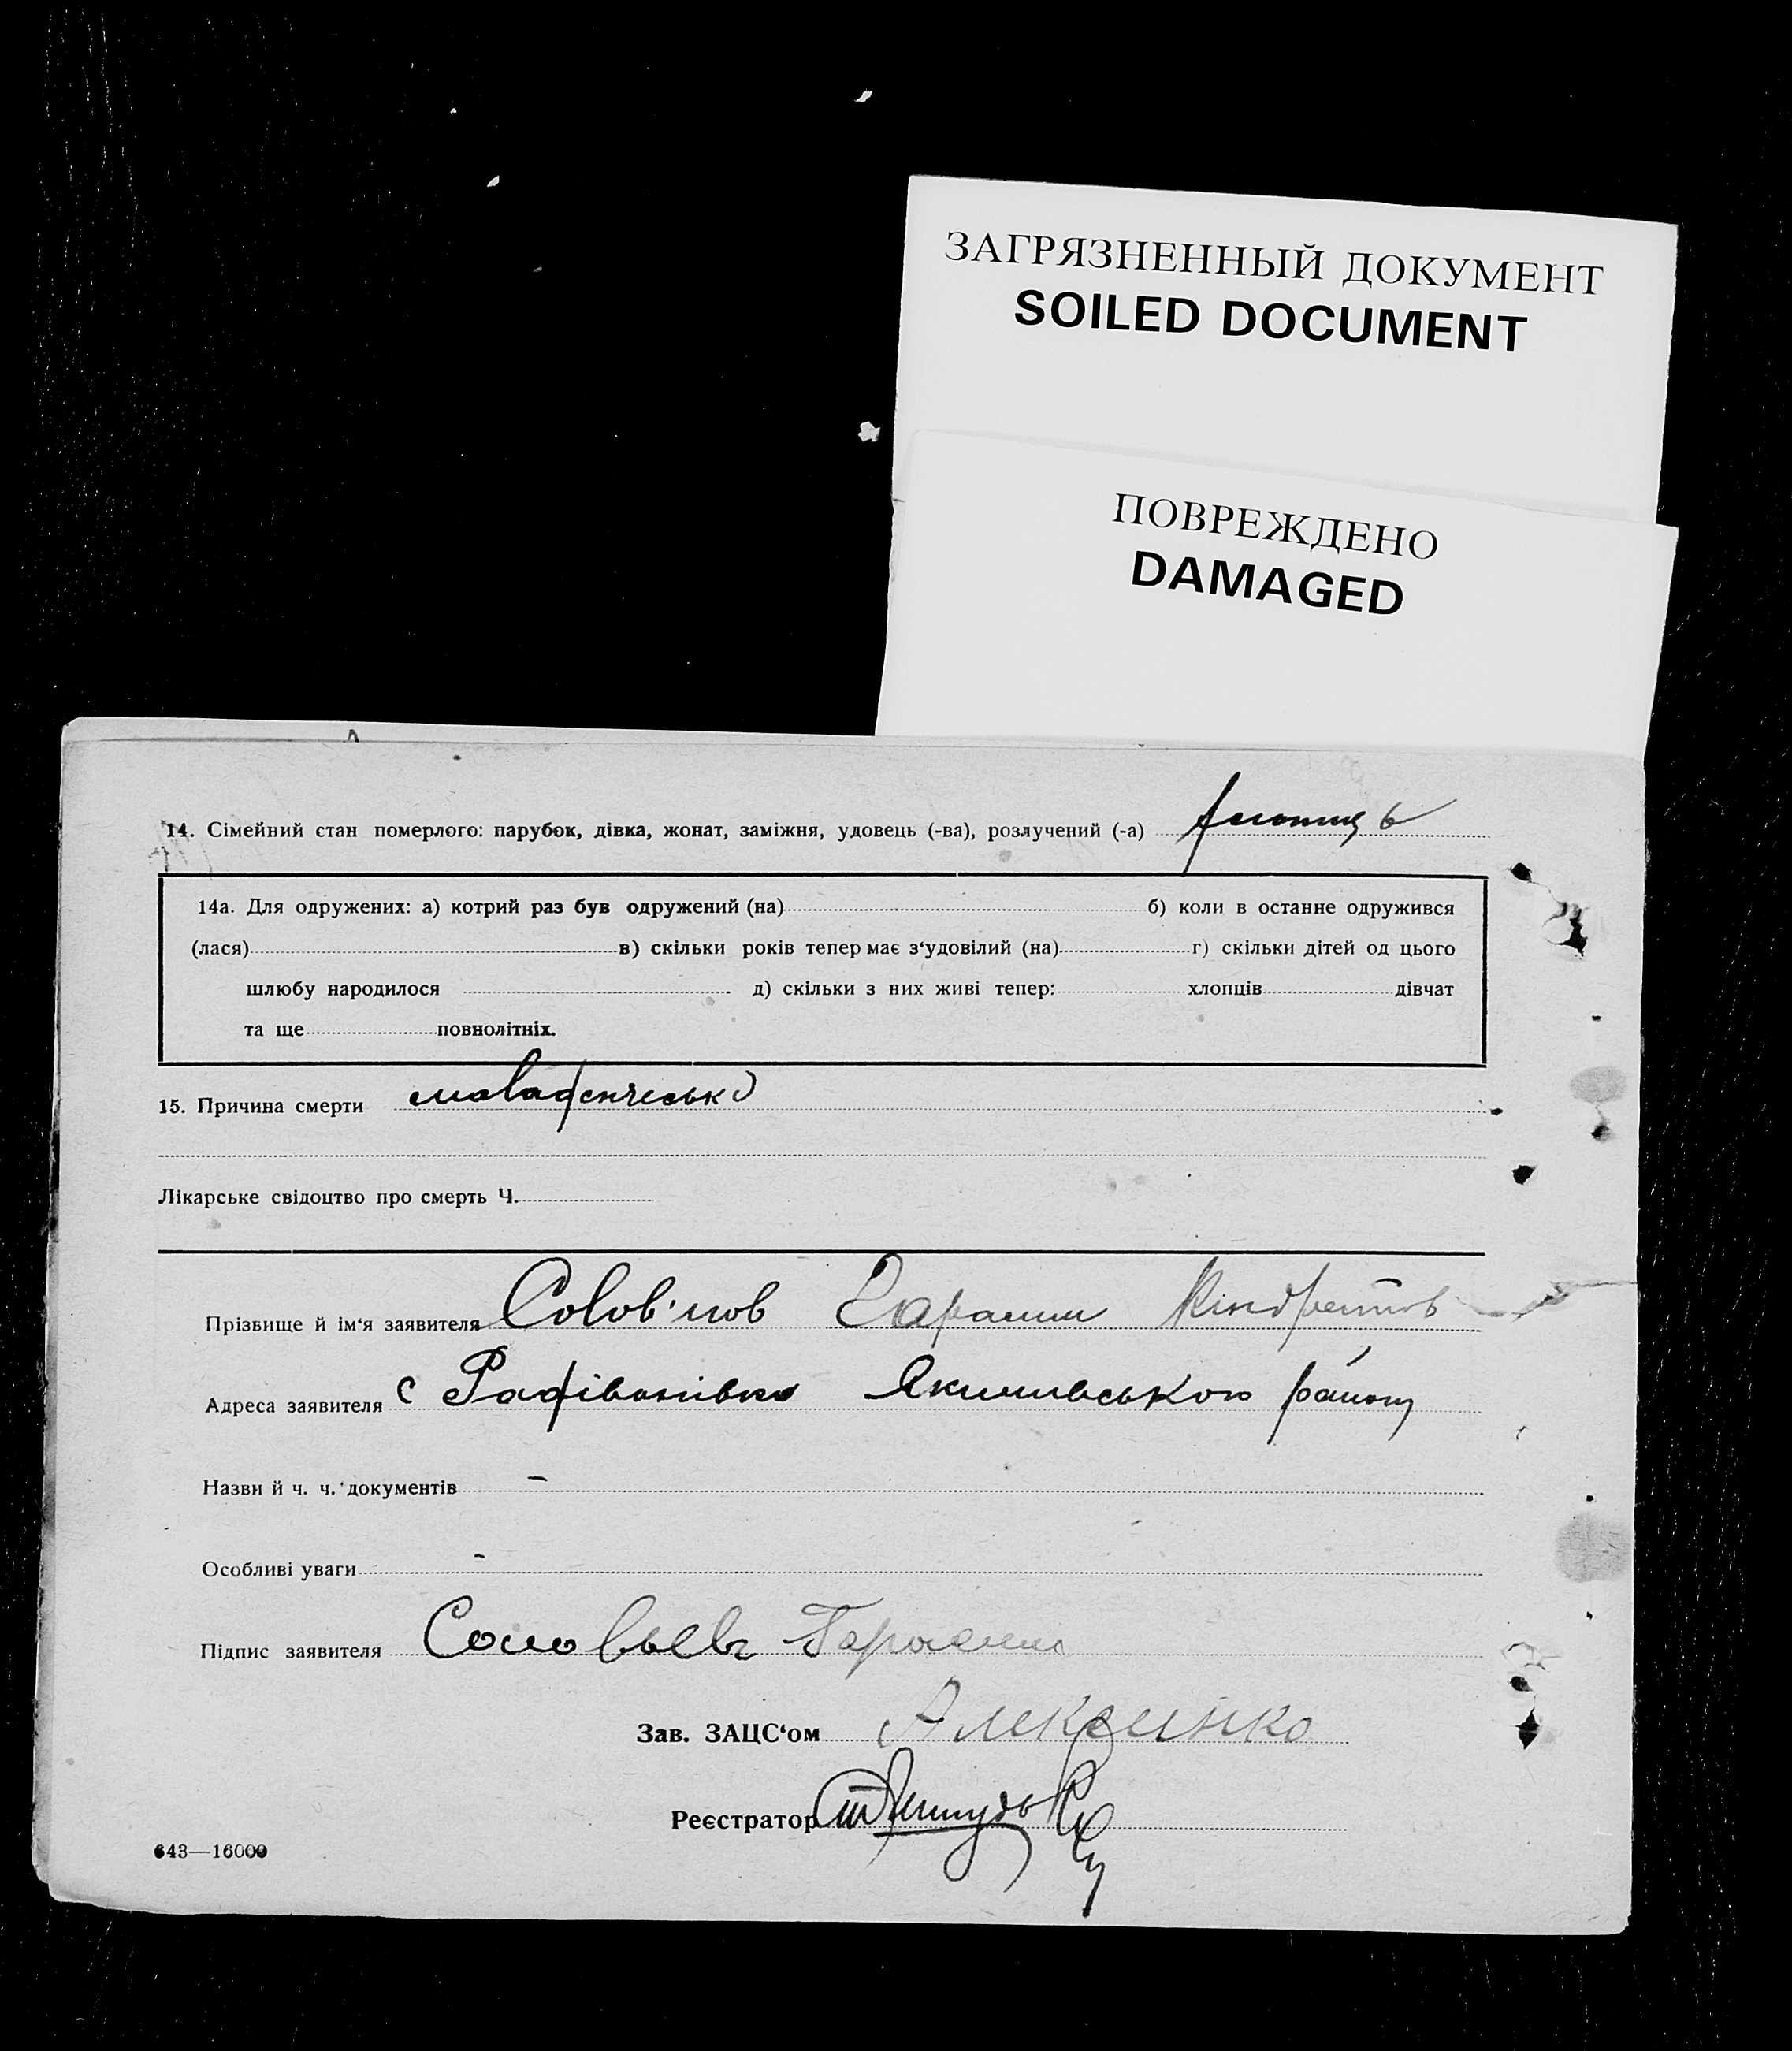 ЗАГРЯЗНЕННЫЙ ДОКУМЕНТ
SOILED DOCUMENT
ПОВРЕЖДЕНО
DAMAGED
14. Сімейний стан померлого: парубок, дівка, жонат, заміжня, удовець (-ва), розлучений (-а)
14а. Для одружених: а) котрий раз був одружений (на) б) коли в останне одружився
(лася) в) скільки років тепер має з‘удовілий (на) г) скільки дітей од цього
шлюбу народилося д) скільки з них живі тепер: хлопців дівчат
та ще повнолітніх.
15. Причина смерти
Лікарське свідоцтво про смерть Ч.
Прізвище й ім‘я заявителя Солов'йов Гарасим Кіндратов
Адреса заявителя с Радівонівка Якимівського району
Назви й ч. ч. документів –
Особливі уваги -
Підпис заявителя Соловьев Герасим
Зав. ЗАЦС‘ом
Реєстратор
643—16000